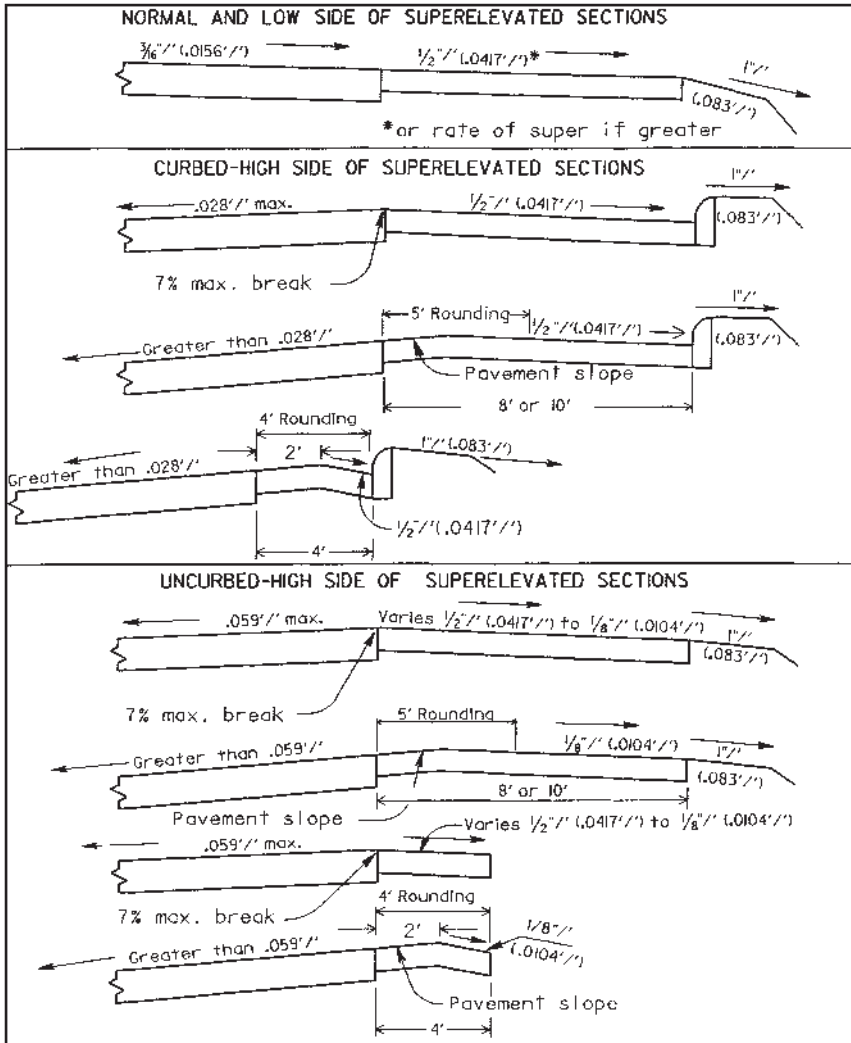 NORMAL AND LOW SIDE OF SUPERELEVATED SECTIONS
3/16"/' (.0156'/')
1/2"/' (.0417'/')*
1"/'
(.083'/')
*or rate of super if greater
CURBED-HIGH SIDE OF SUPERELEVATED SECTIONS
.028'/' max.
1/2"/' (.0417'/')
1"/'
(.083'/')
7% max. break
5' Rounding
1"/'
Greater than .028'/'
1/2"/'(.0417'/')
(.083'/')
Pavement slope
8' or 10'
4' Rounding
2'
1"/' (.083'/')
Greater than .028'/'
1/2"/'(.0417'/')
4'
UNCURBED-HIGH SIDE OF SUPERELEVATED SECTIONS
.059'/' max.
Varies 1/2"/' (.0417'/') to 1/8"/' (.0104'/')
1"/'
(.083'/')
7% max. break
5' Rounding
Greater than .059'/'
1/8"/' (.0104'/')
1"/'
(.083'/')
8' or 10'
Pavement slope
Varies 1/2"/' (.0417'/') to 1/8"/' (.0104'/')
.059'/' max.
7% max. break
4' Rounding
2'
1/8"/'
(.0104'/')
Greater than .059'/'
Pavement slope
4'